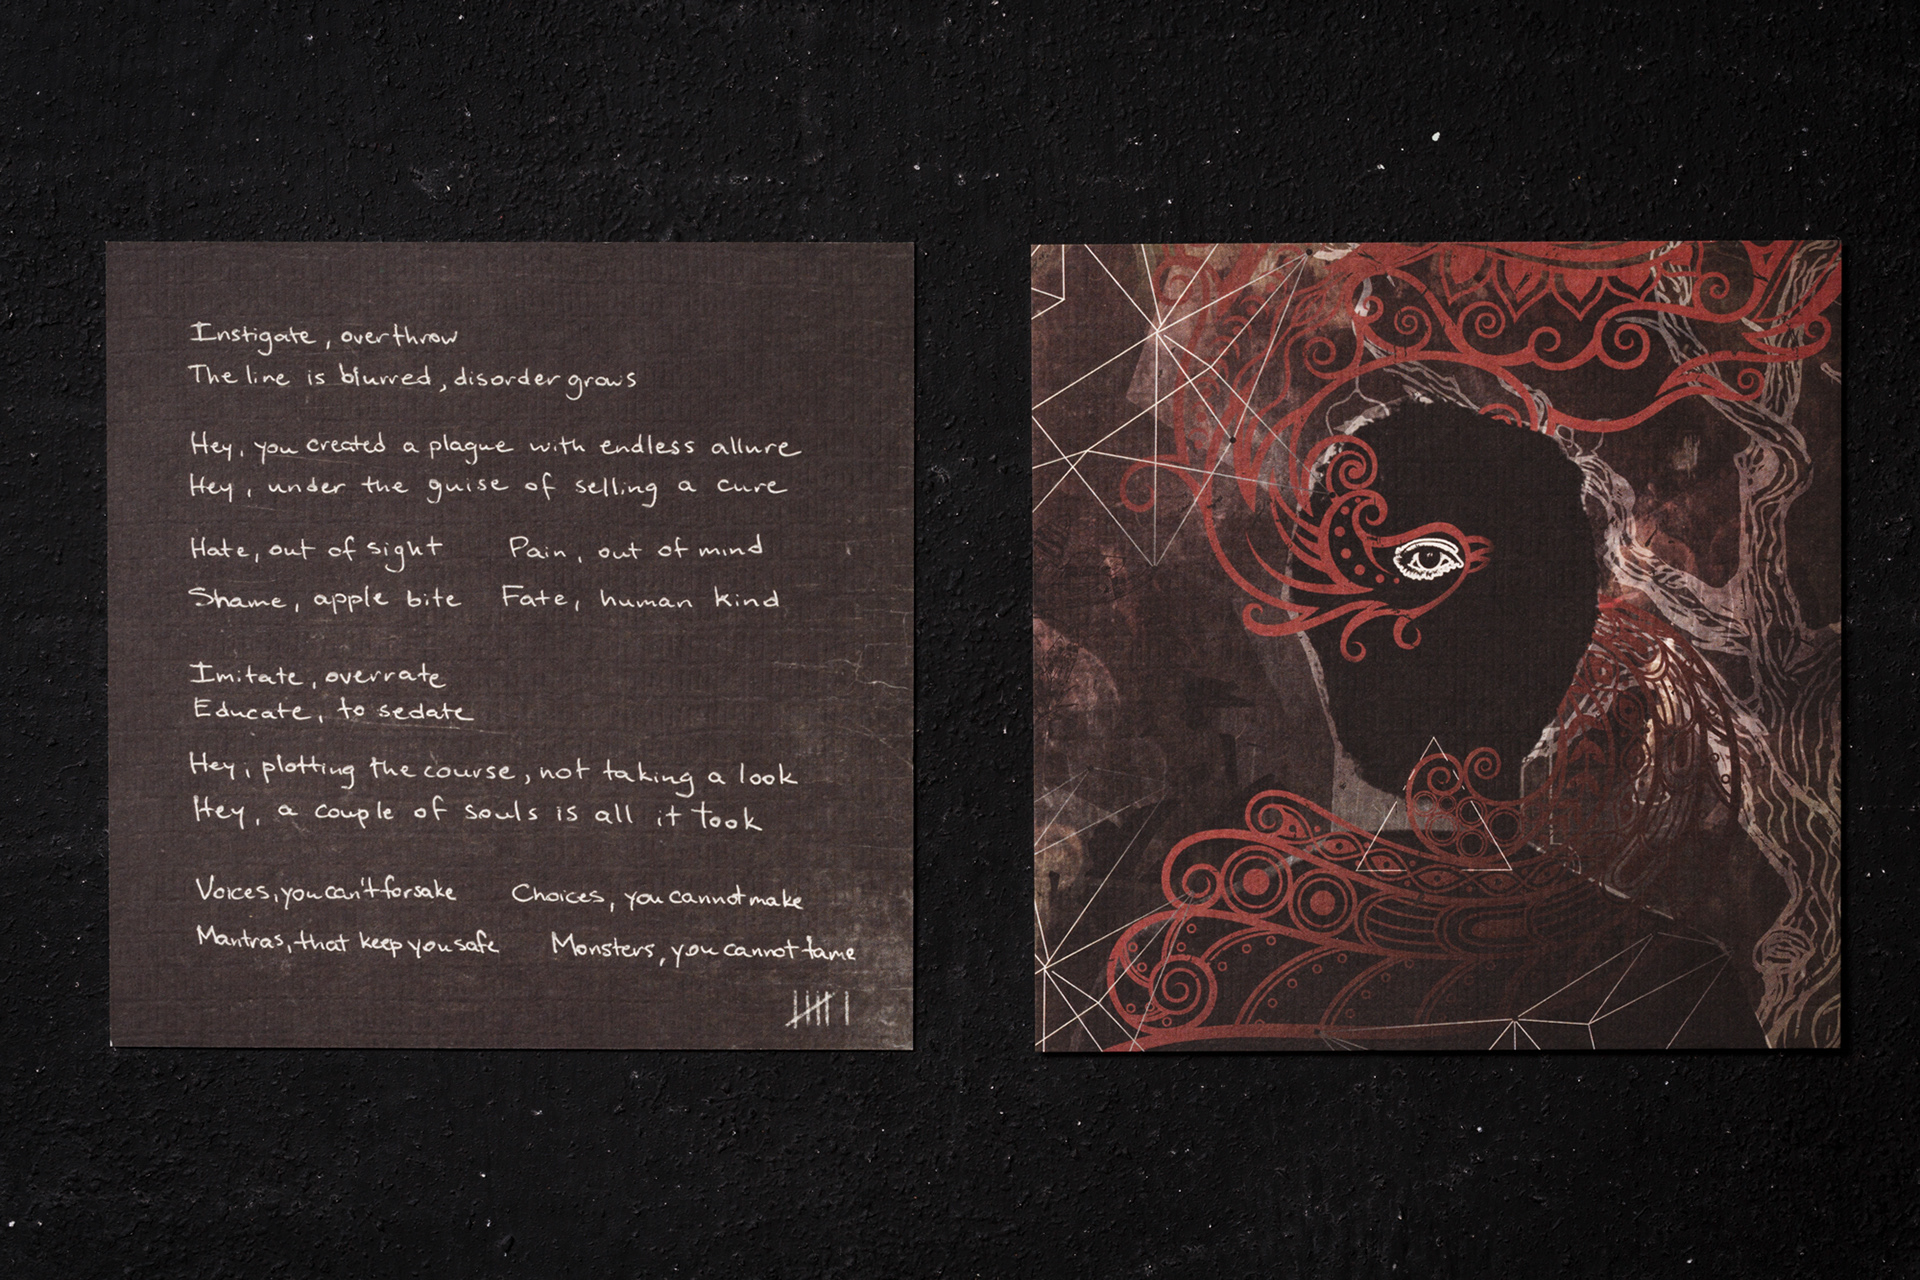 Instigate, overthrow
The line is blurred, disorder grows
Hey, you created a plague with endless allure
Hey, under the guise of selling a cure
Hate, out of sight Pain, out of mind
Shame, apple bite Fate, human kind
Imitate, overrate
Educate, to sedate
Hey, plotting the course, not taking a look
Hey, a couple of souls is all it took
Voices, you can't forsake Choices, you cannot make
Mantras, that keep you safe Monsters, you cannot tame